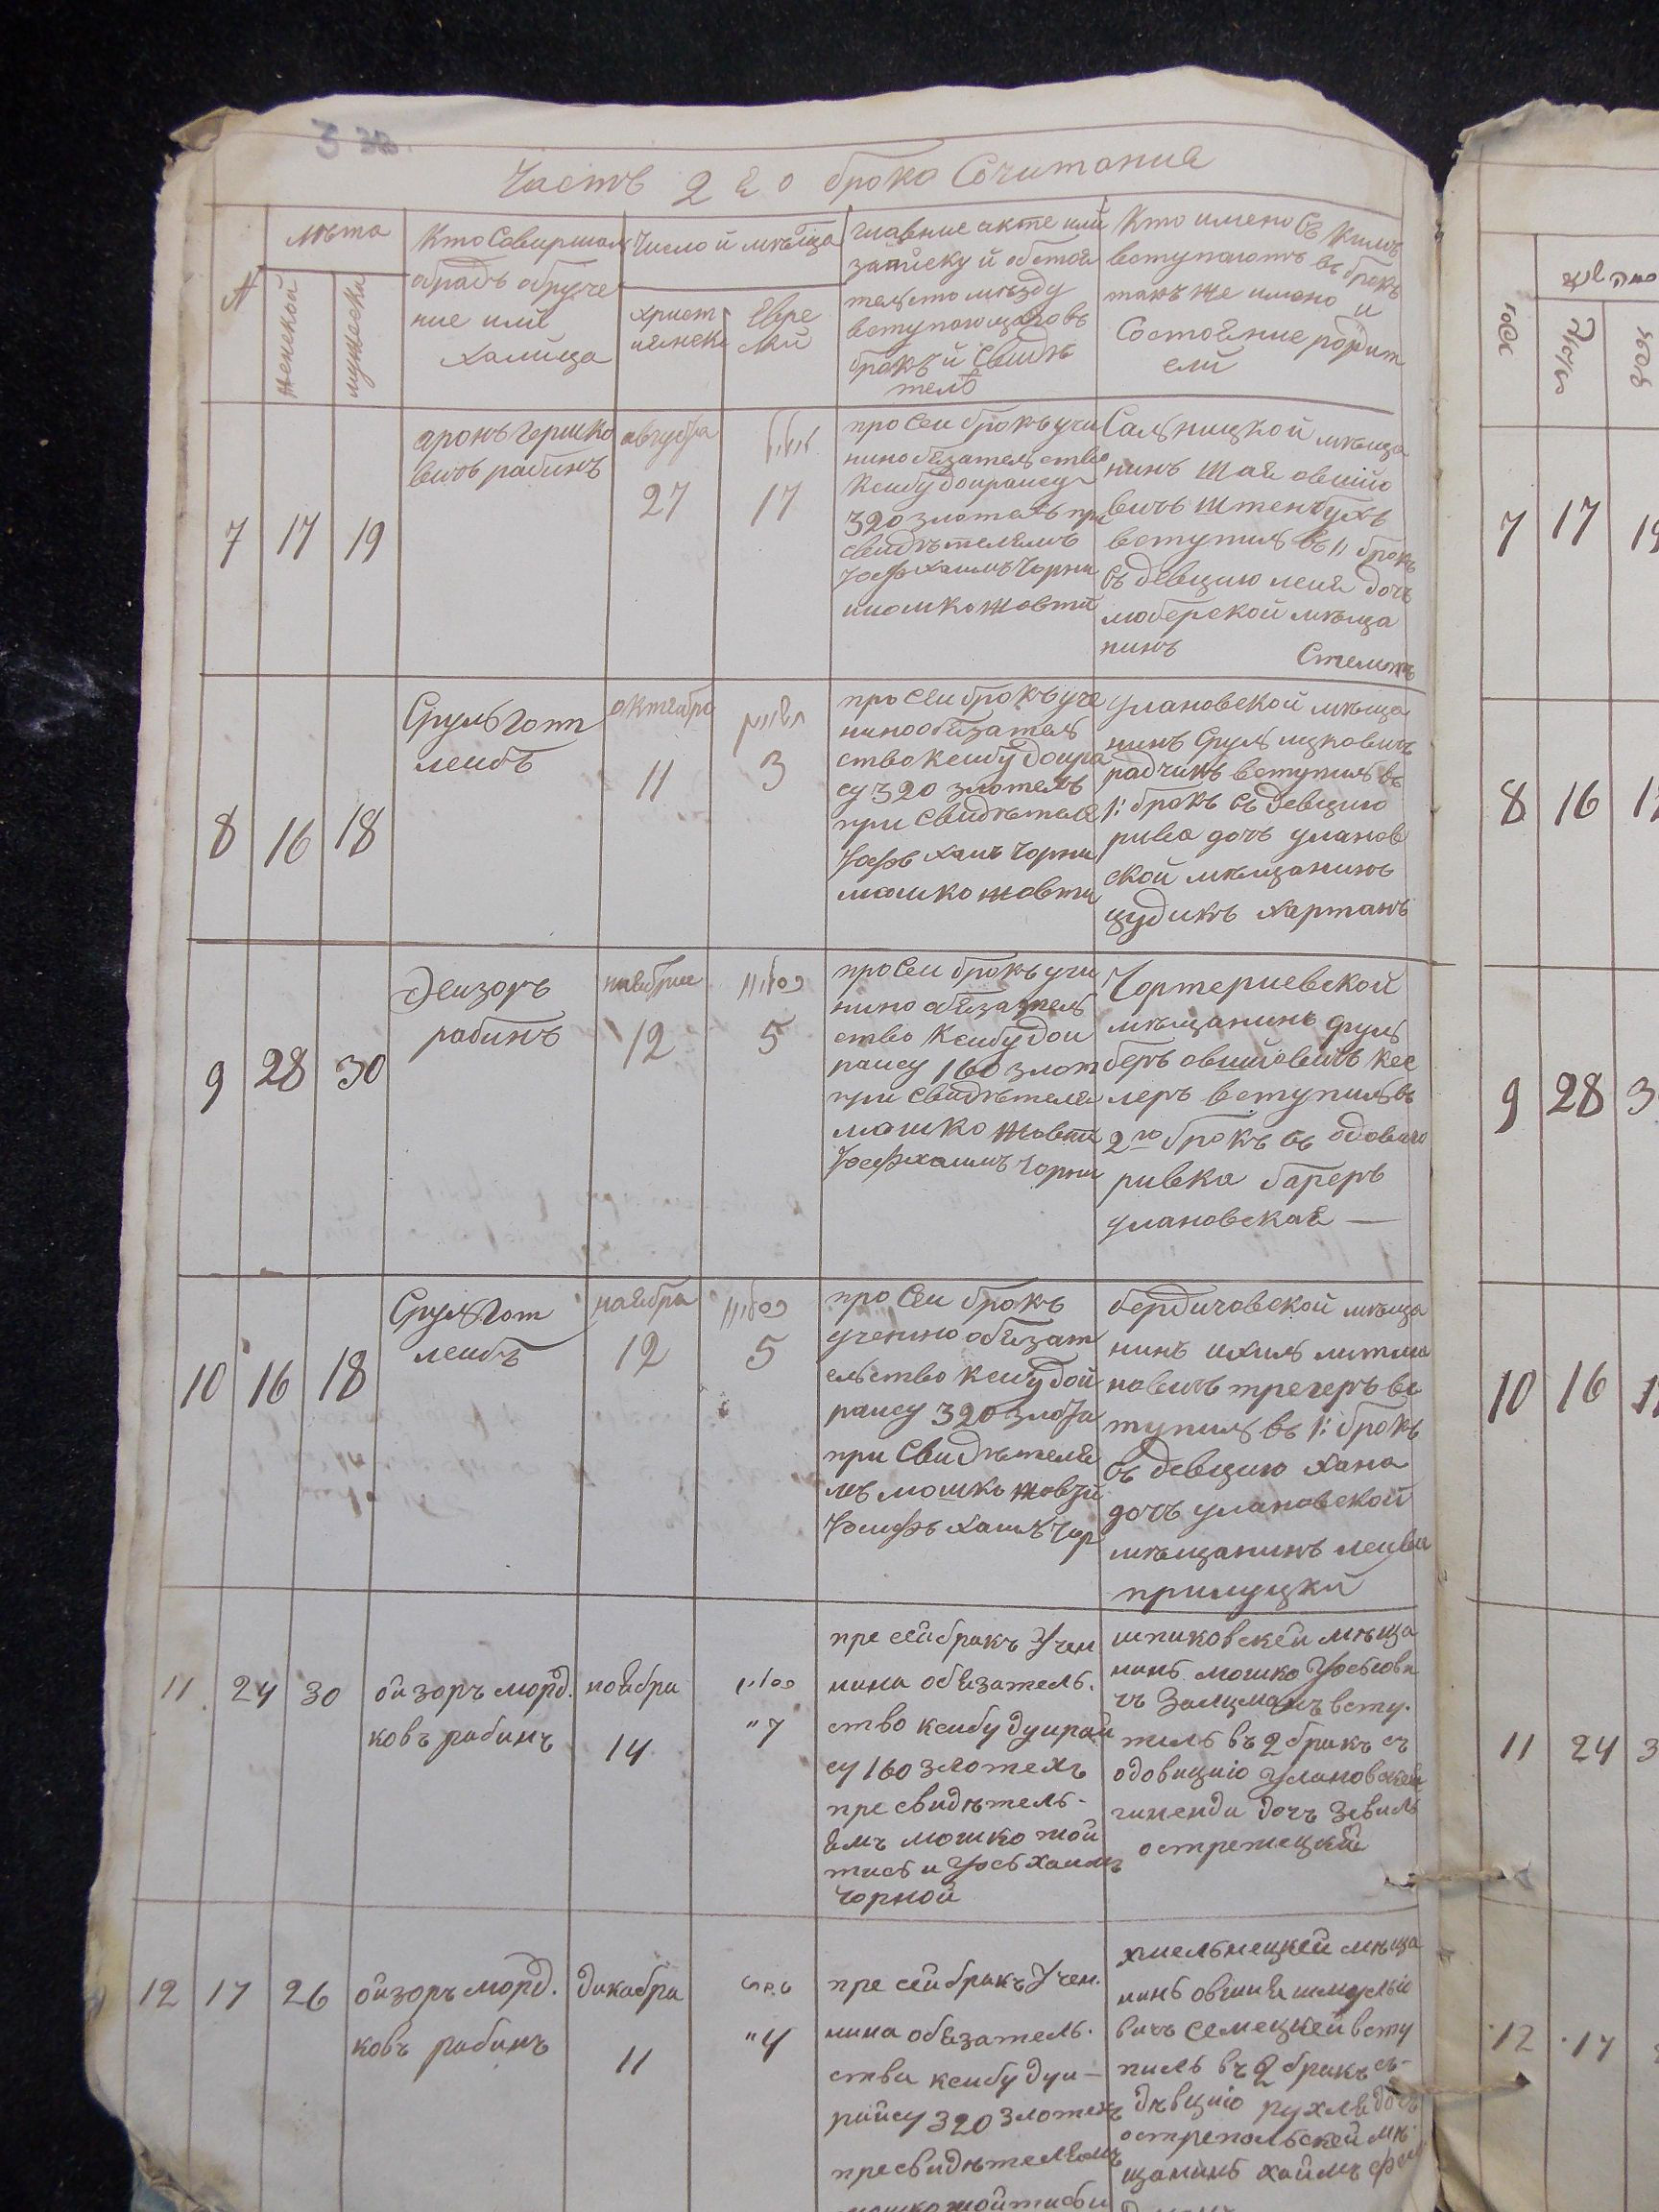 Часть 2 гоброко Сочитания
№
лѣта
женской
мужеска
Кто Совиршал
обрадъ обруче
ние или
халица
Число й мѣсяца
христ
иянска
Евре
ский
главние акте или
записку й обстоя
тельсто между
вступающаховъ
бракъ й свидѣ
телѣ
Кто имено Съ Кимъ
вступаютъ въ брокъ
такъ же имено и
Состояние родит
ели
7
17
19
аронъ гершко
вичъ рабинъ
августа
27
אלול
17
про Сеи брокъ учи
нино обязательство
Ксибу доираису
320 злотахъ при
свидѣтелямъ
Іосф хаимъ Чорни
имошко жовтй
Сальницкой мѣща
нинъ Шая овшио
вичъ Штенбухъ
вступилъ въ 1 брокъ
съ девцию лея дочъ
люберской мѣща
нинъ
8
16
18
Сруль Гот
леибъ
октебра
11
תשרי
3
про Сеи брокъ уче
нино обязатель
ство ксибу доира
су 320 злотехъ
при Свидѣтеле
Іосфъ хаимъ Чорни
мошко жовти
улановской мѣща
нинъ Сруль ицковичъ
радчикъ вступилъ въ
1: брокъ съ девцию
рива дочъ уланов
ской мѣщанинъ
цудикъ хартанъ
9
28
30
Эеизоръ
рабинъ
наебрие
12
כסליו
5
про Сеи брокъ учи
нино обязатель
ство Ксибу дои
раису 160 злот
при Свидѣтеля
мошко жовти
Іосф хаимъ Чорни
Чортериевской
мѣщанинъ дуль
беръ овшиовичъ кес
леръ вступилъ въ
2го брокъ съ одовицю
ривка багеръ
улановская —
10
16
18
Сруль Гот
леибъ
наебра
12
כסליו
5
про Сеи брокъ
ученино обязат
ельство ксибу дой
раису 320 злоти
при Свидѣтеля
мъ мошко жовти
Іосифъ хаимъ Чор
бердичовской мѣща
нинъ ихиль литма
новичъ трегеръ вс
тупилъ въ 1: брокъ
съ девцию хана
дочъ улановской
мѣщанинъ леива
прилуцки
11
24
30
ойзоръ морд.
ковъ рабинъ
ноября
14
כסליו
" 7
пре сей бракъ Учен
нина обязатель.
ство ксибу дуирай
су 160 злотехъ
пре свидѣтель-
ямъ мошко жой
тись и Іось хаимъ
Чорной
шпиковскей мѣща
нинъ мошко Іосьови
чъ Залцманъ всту.
пилъ въ 2 бракъ съ
одовицию Улановскей
гиненди дочъ Зевилъ
острежецкй
12
17
26
ойзоръ морд.
ковъ рабинъ
дикабри
11
טבת
" 4
пре сей бракъ Учен.
нина обязатель.
стви ксибу дуи-
райсу 320 злотехъ
пресвидѣтелямъ
мошко жойтись и
хмельнецкей мѣща
нинъ овшия шмульо
вичъ Семецкей всту
пилъ въ 2 бракъ съ-
дѣвцию рухля дочъ
острепольскей мѣ-
щанинъ хаимъ
7
17
8
16
9
28
10
16
11
24
12
17